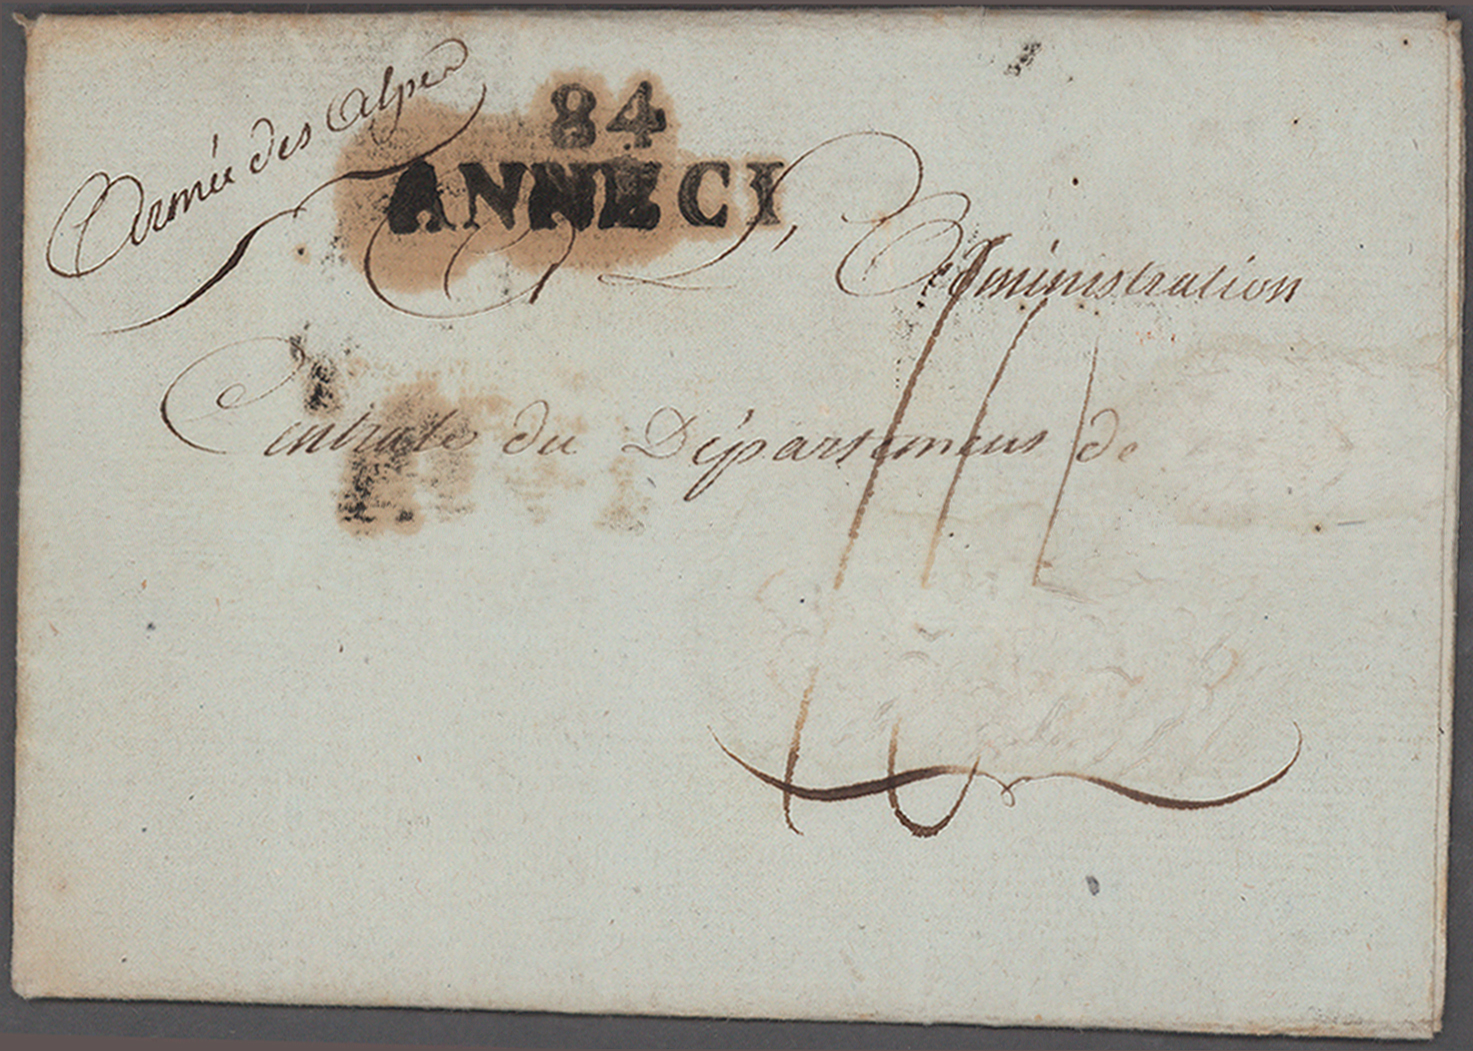 Armée des Alpes
84
ANNECY
A L'Administration
Centrale du Département de